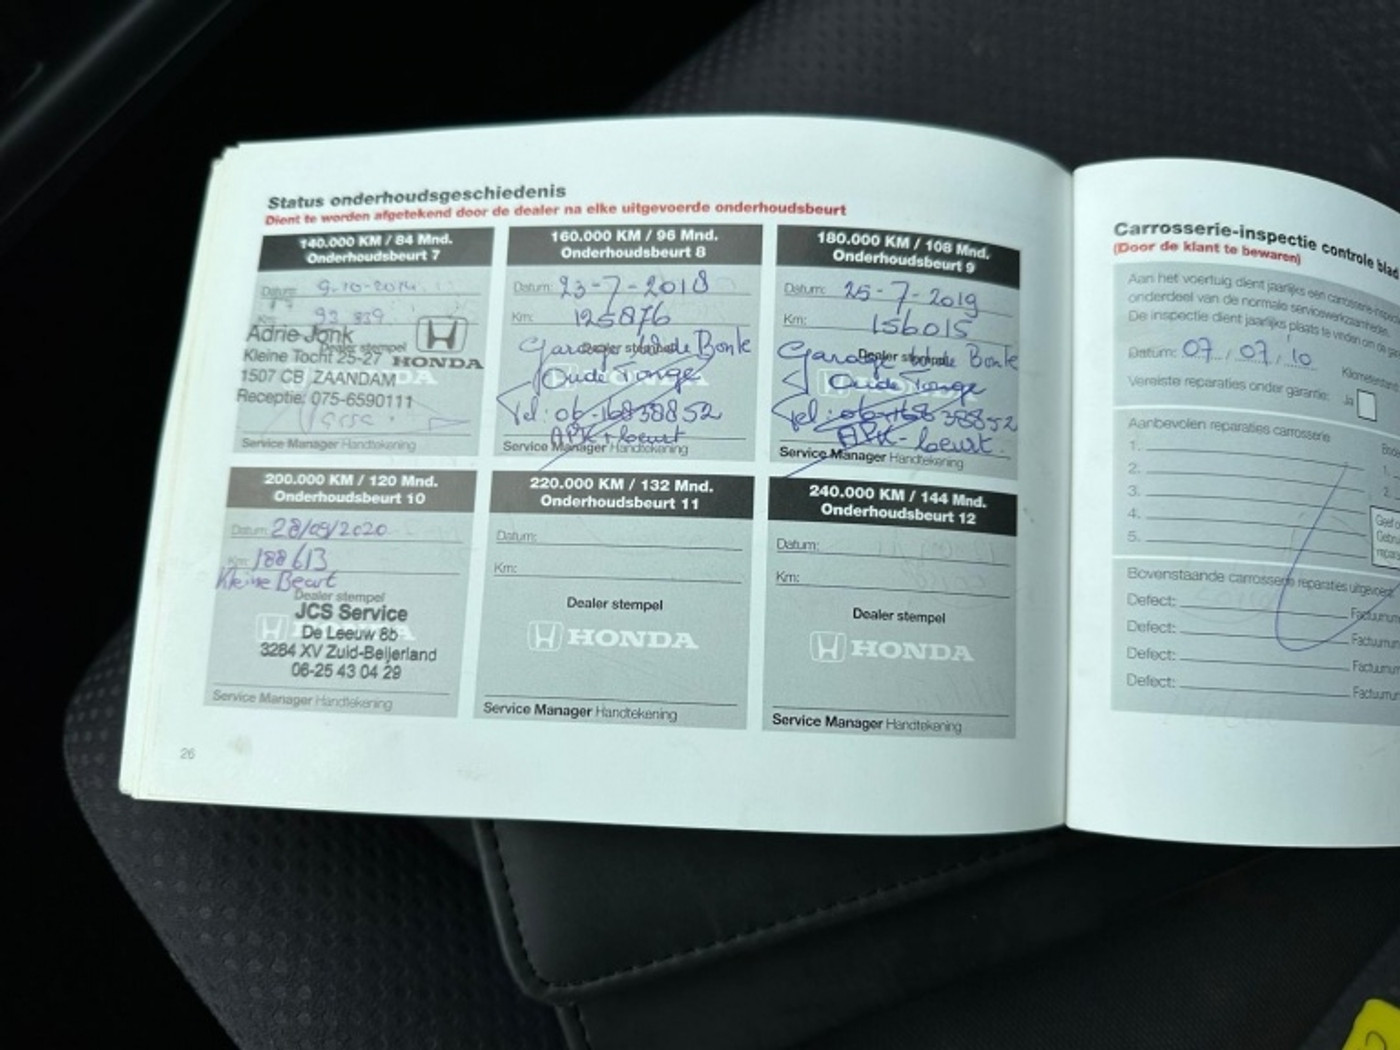 Status onderhoudsgeschiedenis
Dient te worden afgetekend door de dealer na elke uitgevoerde onderhoudsbeurt
140.000 KM / 84 Mnd.
Onderhoudsbeurt 7
Datum: 9-10-2014
Km: 93 839
Adrie Jonk
Dealer stempel
Kleine Tocht 25-27 HONDA
1507 CB ZAANDAM
Receptie: 075-6590111
Service Manager Handtekening
160.000 KM / 96 Mnd.
Onderhoudsbeurt 8
Datum: 23-7-2018
Km: 125876
Garage de Bonte
Dealer stempel
Oude Tonge
HONDA
Tel: 06-16838852
APK + beurt
Service Manager Handtekening
180.000 KM / 108 Mnd.
Onderhoudsbeurt 9
Datum: 25-7-2019
Km: 156015
Garage de Bonte
Dealer stempel
Oude Tonge
Tel: 06-16838852
APK - beurt
Service Manager Handtekening
200.000 KM / 120 Mnd.
Onderhoudsbeurt 10
Datum: 28/09/2020
Km: 188613
Kleine Beurt
Dealer stempel
JCS Service
De Leeuw 8b
3284 XV Zuid-Beijerland
06-25 43 04 29
Service Manager Handtekening
220.000 KM / 132 Mnd.
Onderhoudsbeurt 11
Datum:
Km:
Dealer stempel
HONDA
Service Manager Handtekening
240.000 KM / 144 Mnd.
Onderhoudsbeurt 12
Datum:
Km:
Dealer stempel
HONDA
Service Manager Handtekening
26
Carrosserie-inspectie controle blad
(Door de klant te bewaren)
Aan het voertuig dient jaarlijks een carrosserie-inspec
onderdeel van de normale servicewerkzaamheden.
De inspectie dient jaarlijks plaats te vinden om de
Datum: 07/07/10
Kilometerstan
Vereiste reparaties onder garantie: Ja
Aanbevolen reparaties carrosserie
1.
2.
3.
4.
5.
Bovenstaande carrosserie reparaties uitgevoerd
Defect: Factuurnum
Defect: Factuurnum
Defect: Factuurnum
Defect: Factuurnum